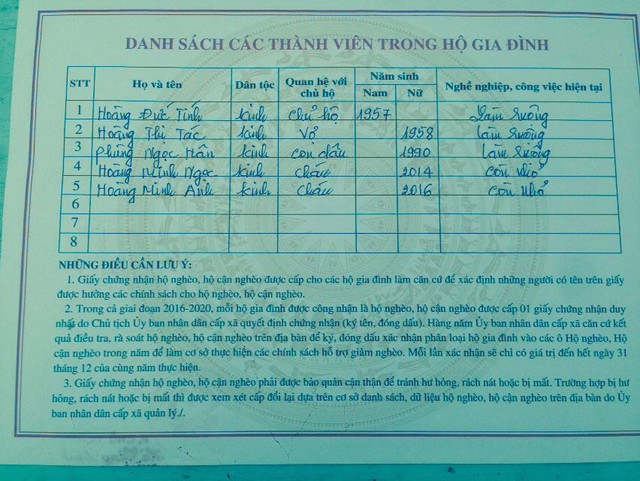 DANH SÁCH CÁC THÀNH VIÊN TRONG HỘ GIA ĐÌNH
STT Họ và tên Dân tộc Quan hệ với chủ hộ Năm sinh Nghề nghiệp, công việc hiện tại
Nam Nữ
1 Hoàng Đức Tính kinh chủ hộ 1957 Làm ruộng
2 Hoàng Thị Tác kinh Vợ 1958 Làm ruộng
3 Phùng Ngọc Hân kinh con dâu 1990 Làm ruộng
4 Hoàng Minh Ngọc kinh cháu 2014 còn nhỏ
5 Hoàng Minh Anh kinh cháu 2016 còn nhỏ
6
7
8
NHỮNG ĐIỀU CẦN LƯU Ý:
1. Giấy chứng nhận hộ nghèo, hộ cận nghèo được cấp cho các hộ gia đình làm căn cứ để xác định những người có tên trên giấy
được hưởng các chính sách cho hộ nghèo, hộ cận nghèo.
2. Trong cả giai đoạn 2016-2020, mỗi hộ gia đình được công nhận là hộ nghèo, hộ cận nghèo được cấp 01 giấy chứng nhận duy
nhất do Chủ tịch Ủy ban nhân dân cấp xã quyết định chứng nhận (ký tên, đóng dấu). Hàng năm Ủy ban nhân dân cấp xã căn cứ kết
quả điều tra, rà soát hộ nghèo, hộ cận nghèo trên địa bàn để ký, đóng dấu xác nhận phân loại hộ gia đình vào các ô Hộ nghèo, Hộ
cận nghèo trong năm để làm cơ sở thực hiện các chính sách hỗ trợ giảm nghèo. Mỗi lần xác nhận sẽ chỉ có giá trị đến hết ngày 31
tháng 12 của cùng năm thực hiện.
3. Giấy chứng nhận hộ nghèo, hộ cận nghèo phải được bảo quản cận thận để tránh hư hỏng, rách nát hoặc bị mất. Trường hợp bị hư
hỏng, rách nát hoặc bị mất thì được xem xét cấp đổi lại dựa trên cơ sở danh sách, dữ liệu hộ nghèo, hộ cận nghèo trên địa bàn do Ủy
ban nhân dân cấp xã quản lý./.